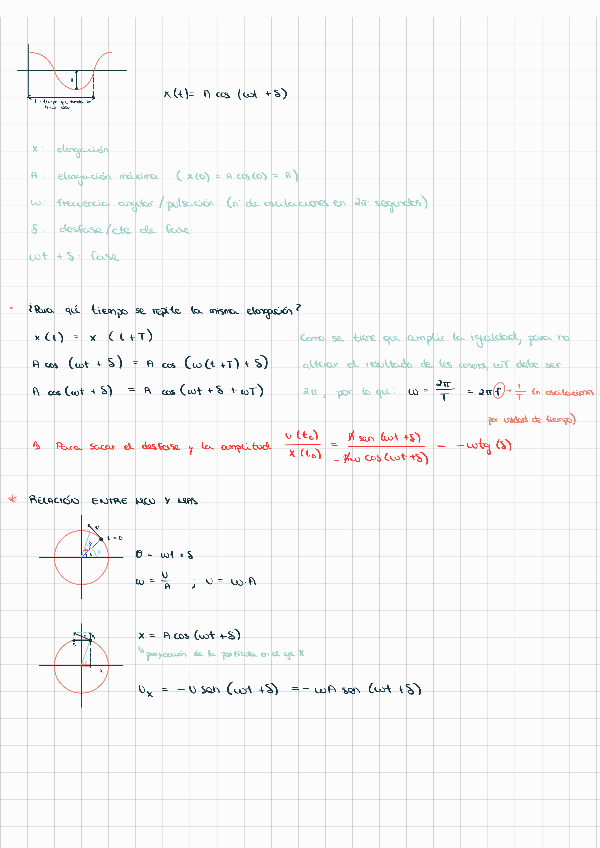 x(t)= A cos (ωt + δ)
x: elongación
A: elongación máxima (x(0) = A cos(0) = A)
ω: frecuencia angular/pulsación (nº de oscilaciones en 2π segundos)
δ: desfase/cte de fase
ωt + δ: fase
¿Para qué tiempo se repite la misma elongación?
x(t) = x (t+T)
A cos (ωt + δ) = A cos (ω(t+T) + δ)
A cos (ωt + δ) = A cos (ωt + δ + ωT)
Como se tiene que cumplir la igualdad, para no
alterar el resultado de los cosenos, ωT debe ser
2π, por lo que: ω = 2π/T = 2πf → 1/T (n oscilaciones
por unidad de tiempo)
Para sacar el desfase y la amplitud v(t₀)/x(t₀) = A sen (ωt + δ)/-Aω cos(ωt + δ) = -ωtg(δ)
* RELACIÓN ENTRE MCU Y MAS
t = 0
θ = ωt + δ
ω = v/A ; v = ω·A
x = A cos (ωt + δ)
proyección de la partícula en el eje X
vₓ = -v sen (ωt + δ) = -ωA sen (ωt + δ)